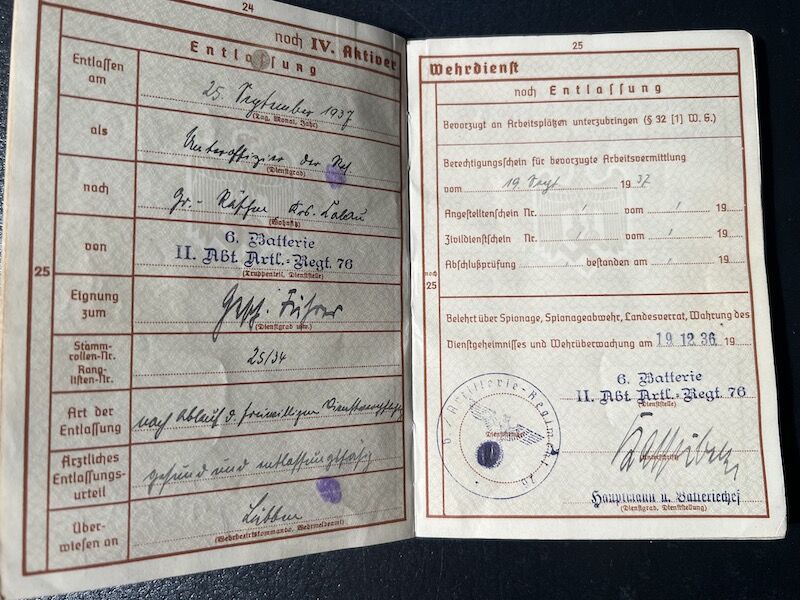 24
noch IV. Aktiver
Entlassung
Entlassen am
25. September 1937
(Tag, Monat, Jahr)
als
Unteroffizier der Res.
(Dienstgrad)
nach
Gr.- Krs. Calau
(Wohnsitz)
von
6. Batterie
II. Abt Artl.-Regt. 76
(Truppenteil, Dienststelle)
25
Eignung zum
Gesch. Führer
(Dienstgrad usw.)
Stamm-
rollen-Nr.
Rang-
listen-Nr.
25/34
Art der
Entlassung
nach Ablauf d. freiwilligen
Ärztliches
Entlassungs-
urteil
gesund und entlassungsfähig
Über-
wiesen an
Lübben
(Wehrbezirkskommando, Wehrmeldeamt)
25
Wehrdienst
noch Entlassung
Bevorzugt an Arbeitsplätzen unterzubringen (§ 32 [1] W. G.)
Berechtigungsschein für bevorzugte Arbeitsvermittlung
vom 19 Sept 1937
Angestelltenschein Nr. / vom / 19
Zivildienstschein Nr. / vom / 19
Abschlußprüfung / bestanden am / 19
noch
25
Belehrt über Spionage, Spionageabwehr, Landesverrat, Wahrung des
Dienstgeheimnisses und Wehrüberwachung am 19 12 36 19
6. Batterie
II. Abt Artl.-Regt. 76
(Dienststelle)
6./Artillerie-Regiment 76
Dienststempel
Hauptmann u. Batteriechef
(Dienstgrad, Dienststellung)